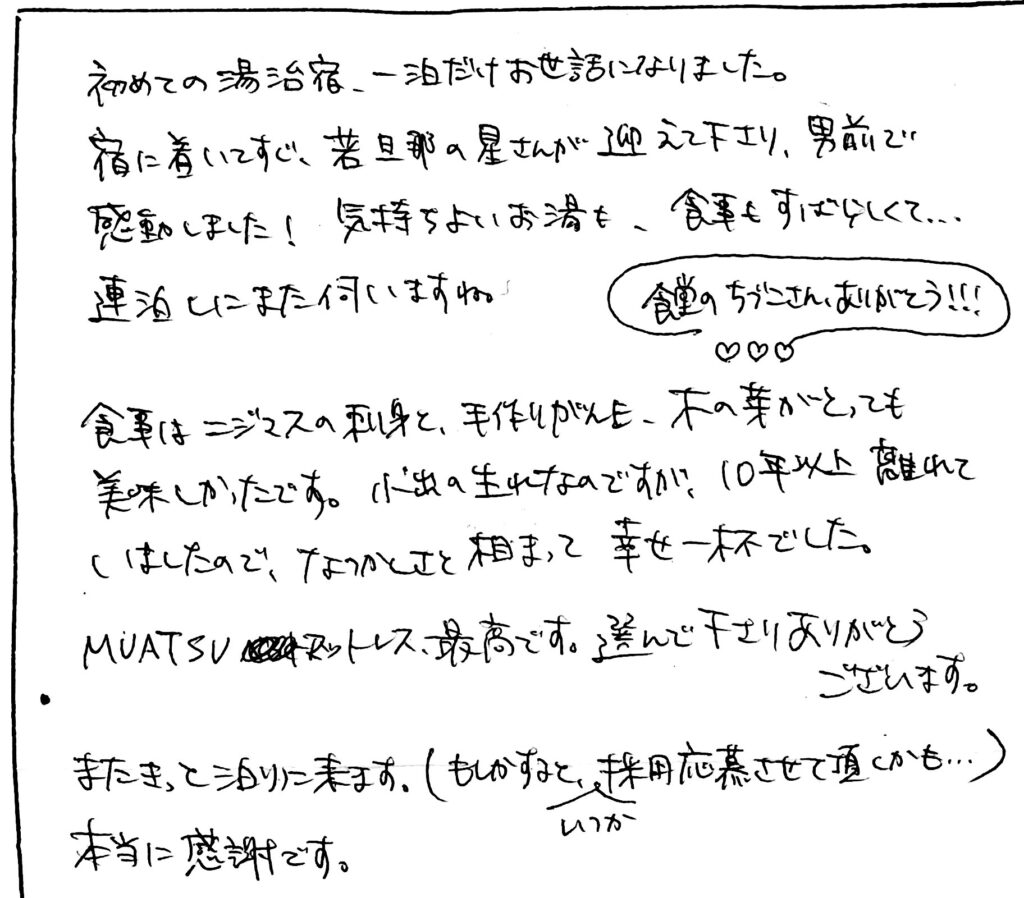 初めての湯治宿、一泊だけお世話になりました。
宿に着いてすぐ、若旦那の星さんが迎えて下さり、男前で
感動しました! 気持ちよいお湯も、食事もすばらしくて...
連泊しにまた伺いますね。
食堂のちづこさん、ありがとう!!!
♡♡♡
食事はニジマスの刺身と、手作りがんも、木の芽がとっても
美味しかったです。小出の生れなのですが、10年以上離れて
いましたので、なつかしさと相まって幸せ一杯でした。
MUATSU マットレス、最高です。選んで下さりありがとう
ございます。
またきっと泊りに来ます。(もしかすると、採用応募させて頂くかも...)
いつか
本当に感謝です。